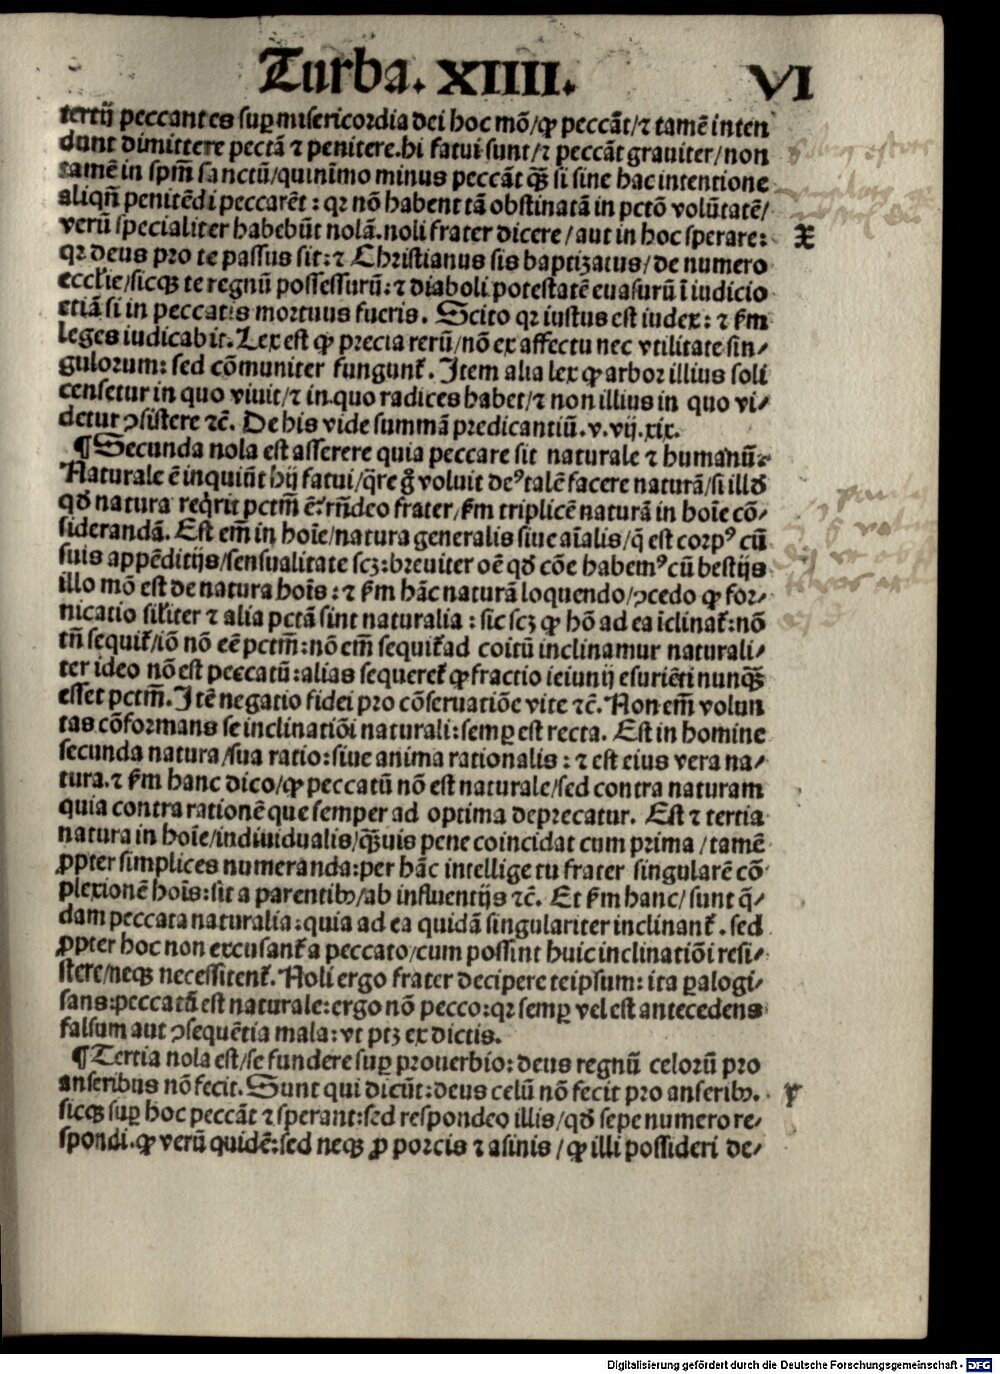 Turba. XIIII. VI
tertij peccantes sup̱ misericordia dei hoc mō/ꝙ peccāt/⁊ tamē inten
dunt dimittere pectā ⁊ penitere. hi fatui sunt/⁊ peccāt grauiter/non
tamē in spm̄ sanctū/quinīmo minus peccāt q̄ꝫ si sine hac intentione
aliqn̄ penitēdi peccarēt: qꝛ nō habent tā obstinatā in pctō volūtatē/
verū specialiter habebūt nolā. noli frater dicere/aut in hoc sperare: X
qꝛ deus pro te passus sit: ⁊ Christianus sis baptizatus/de numero
eccl'ie/sicqꝫ te regnū possessurū: ⁊ diaboli potestatē euasurū ī iudicio
etiā si in peccatis mortuus fueris. Scito qꝛ iustus est iudex: ⁊ s'm
leges iudicabit. Lex est ꝙ precia rerū/nō ex affectu nec vtilitate sin/
gulorum: sed cōmuniter fungunt᷑. Item alia lex ꝙ arbor illius soli
censetur in quo viuit/⁊ in quo radices habet/⁊ non illius in quo vi/
detur ꝯsistere ⁊c̄. De his vide summā predicantiū. v. vij. xix.
¶ Secunda nola est asserere quia peccare sit naturale ⁊ humanū.
Naturale ē inquiūt hij fatui/q̄re g̊ voluit deꝰ talē facere naturā/si illđ
qđ natura reqͥrit pctm̄ ē: rn̄deo frater/s'm triplicē naturā in hoīe cō/
siderandā. Est em̄ in hoīe/natura generalis siue aīalis/q̄ est corpꝰ cū
suis appēditijs/sensualitate scꝫ: breuiter oē qđ cōe habemꝰ cū bestijs
illo mō est de natura hoīs: ⁊ s'm hāc naturā loquendo/ꝯcedo ꝙ for/
nicatio sil'iter ⁊ alia pctā sint naturalia: sic scꝫ ꝙ hō ad ea īclinat᷑: nō
tn̄ sequit᷑/iō nō eē pctm̄: nō em̄ sequit᷑ ad coitū inclinamur naturali/
ter ideo nō est peccatū: alias sequeret᷑ ꝙ fractio ieiunij esuriēti nunq̄ꝫ
esset pctm̄. Itē negatio fidei pro cōseruatiōe vite ⁊c̄. Non em̄ volun
tas cōformans se inclinatiōi naturali: semp̱ est recta. Est in homine
secunda natura/sua ratio: siue anima rationalis: ⁊ est eius vera na/
tura. ⁊ s'm hanc dico/ꝙ peccatū nō est naturale/sed contra naturam
quia contra rationē que semper ad optima deprecatur. Est ⁊ tertia
natura in hoīe/indiuidualis/q̄ꝫuis pene coincidat cum prima/tamē
ꝓpter simplices numeranda: per hāc intellige tu frater singularē cō
plexionē hoīs: sit a parentibꝰ/ab influentijs ⁊c̄. Et s'm hanc/sunt q̄/
dam peccata naturalia: quia ad ea quidā singulariter inclinant᷑. sed
ꝓpter hoc non excusant᷑ a peccato/cum possint huic inclinatiōi resi/
stere/neqꝫ necessitent᷑. Noli ergo frater decipere teipsum: ita ꝑalogi/
sans: peccatū est naturale: ergo nō pecco: qꝛ semp̱ vel est antecedens
falsum aut ꝯsequētia mala: vt ptꝫ ex dictis.
¶ Tertia nola est/se fundere sup̱ prouerbio: deus regnū celorū pro
anseribus nō fecit. Sunt qui dicūt: deus celū nō fecit pro anseribꝰ. Y
sicqꝫ sup̱ hoc peccāt ⁊ sperant: sed respondeo illis/qđ sepenumero re/
spondi. ꝙ verū quidē: sed neqꝫ ꝓ porcis ⁊ asinis/ꝙ illi possideri de/
Digitalisierung gefördert durch die Deutsche Forschungsgemeinschaft - DFG